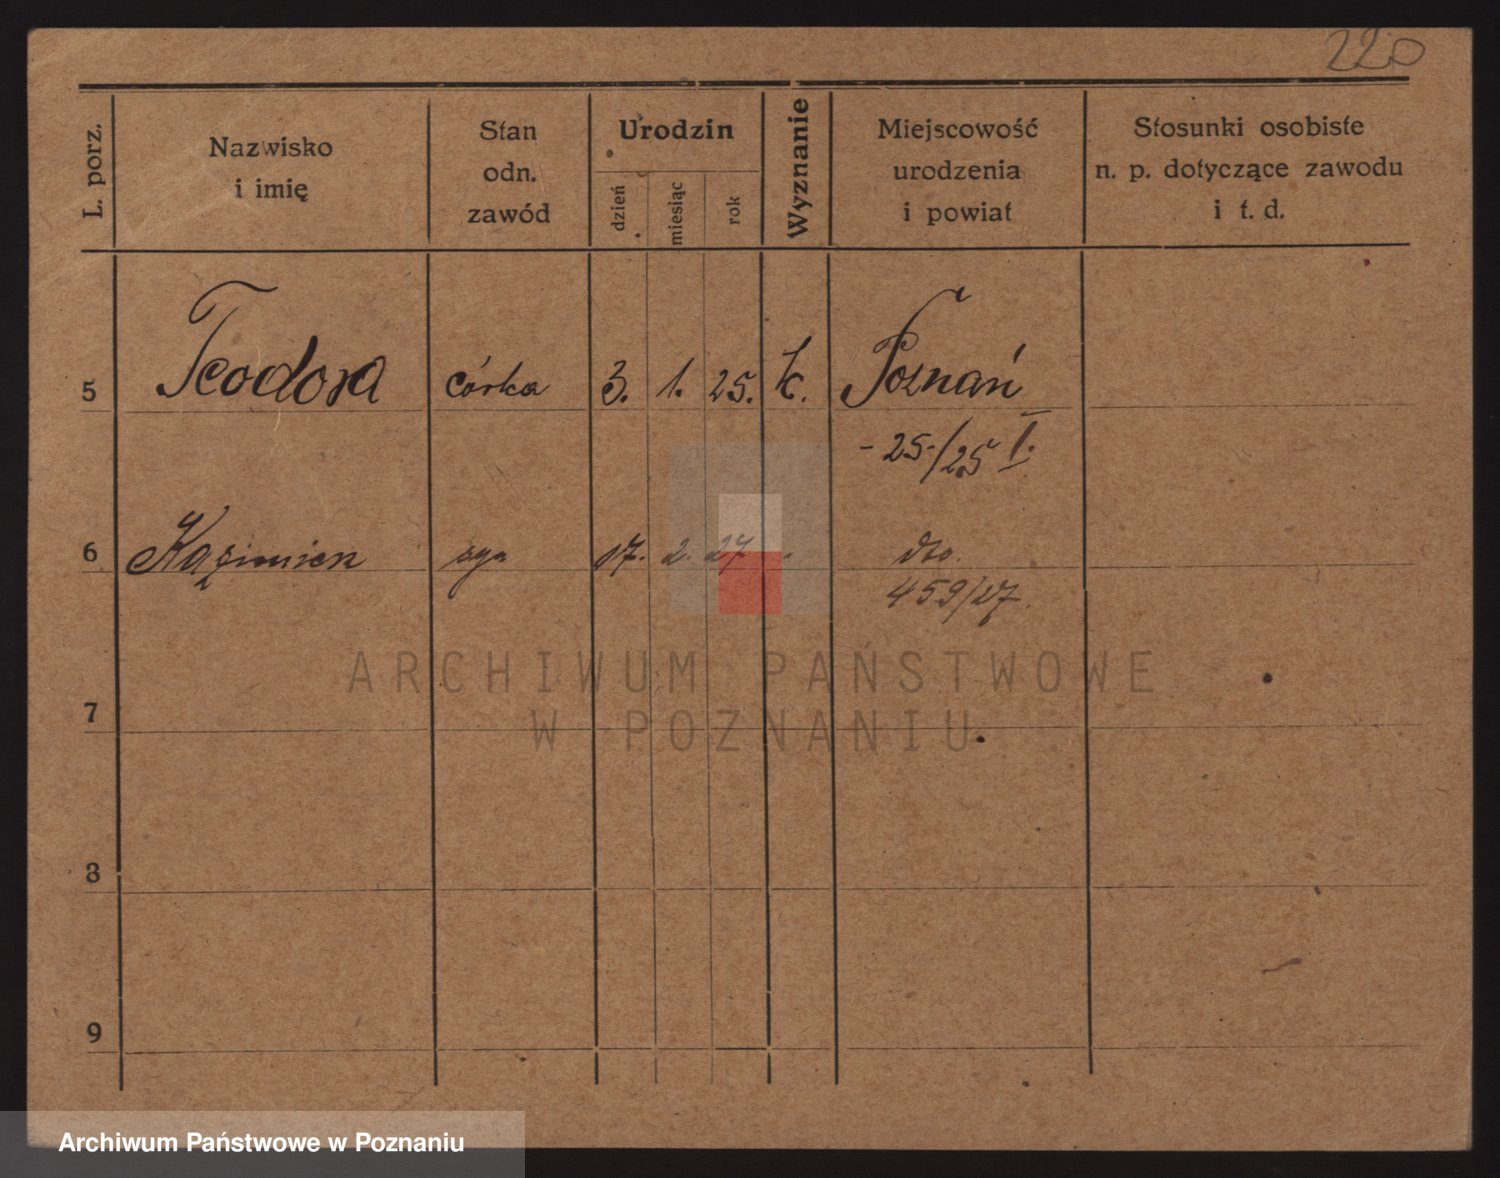 220
L. porz.
Nazwisko
i imię
Stan
odn.
zawód
Urodzin
dzień
miesiąc
rok
Wyznanie
Miejscowość
urodzenia
i powiat
Stosunki osobiste
n. p. dotyczące zawodu
i t. d.
5 Teodora córka 3. 1. 25. k. Poznań
- 25./25 I.
6 Kazimierz syn 17. 2. 27 „ dto.
459/27.
7
8
9
ARCHIWUM PAŃSTWOWE
W POZNANIU
Archiwum Państwowe w Poznaniu